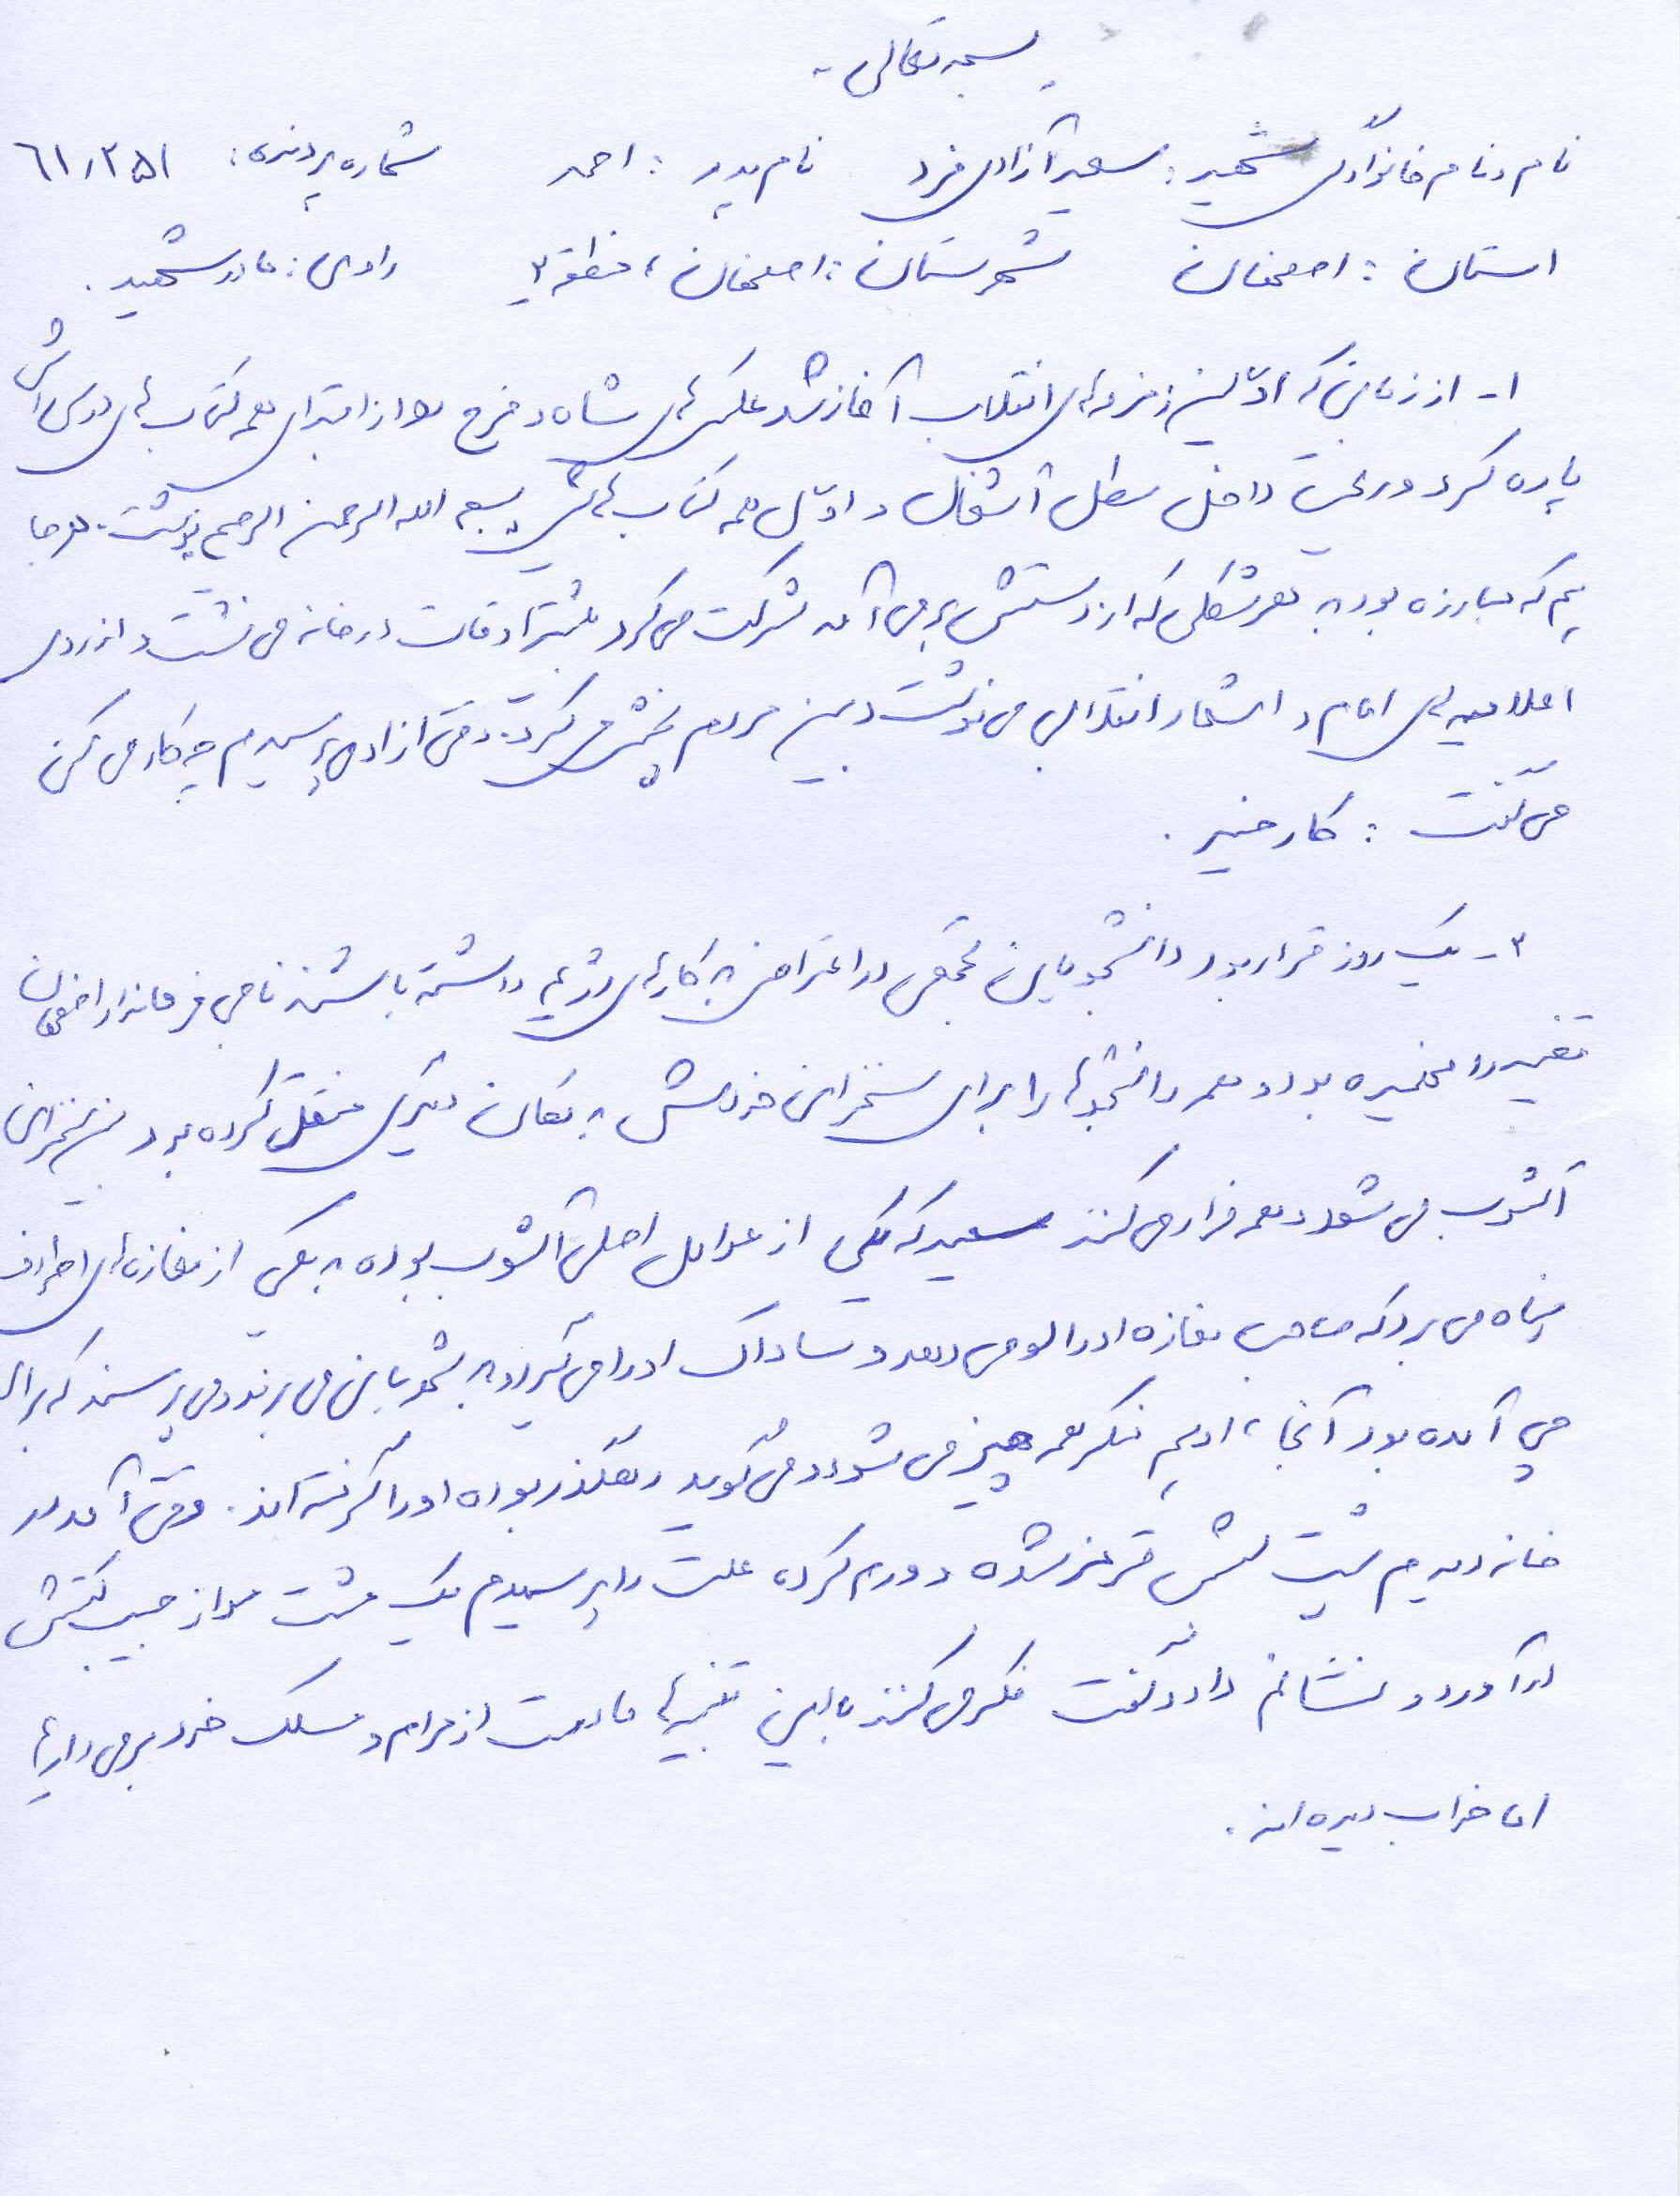 بسمه تعالی
نام و نام خانوادگی شهید: سعید آزادی فرد نام پدر: احمد شماره پرونده: ۶۱/۲۵۱
استان: اصفهان شهرستان: اصفهان، منطقه ۲ راوی: مادر شهید.
۱- از زمانی که اوّلین زمزمه‌های انقلاب آغاز شد عکس‌های شاه و فرح را از ابتدای همه کتاب‌های درسی‌اش
پاره کرد و ریخت داخل سطل آشغال و اوّل همه کتاب‌هایش بسم الله الرحمن الرحیم نوشت. هرجا
هم که مبارزه بود به هر شکلی که از دستش برمی‌آمد شرکت می‌کرد بیشتر اوقات در خانه می‌نشست و از روی
اعلامیه‌های امام و اشعار انقلابی می‌نوشت و بین مردم پخش می‌کرد. وقتی از او می‌پرسیدم چه کار می‌کنی
می‌گفت: کار خیر.
۲- یک روز قرار بود دانشجویان تجمعی در اعتراض به کارهای رژیم داشته باشند ناجی فرماندار اصفهان
قضیه را فهمیده بود و همه دانشجوها را برای سخنرانی خودش به مکان دیگری منتقل کرده بود بین سخنرانی
آشوب می‌شود و همه فرار می‌کنند سعید که یکی از عوامل اصلی آشوب بوده به یکی از مغازه‌های اطراف
پناه می‌برد که صاحب مغازه او را لو می‌دهد و ساواک او را می‌گیرد و به شهربانی می‌برند و می‌پرسند که برای
چی آمده بود آنجا، او هم منکر همه چیز می‌شود و می‌گوید رهگذر بوده او را گرفته‌اند. وقتی آمد در
خانه دیدم پشت لبش قرمز شده و ورم کرده، علت را پرسیدم یک مشت مو از جیب کتش
درآورد و نشانم داد و گفت فکر می‌کنند با این تنبیه‌ها ما دست از مرام و مسلک خود برمی‌داریم
اما خواب دیده‌اند.